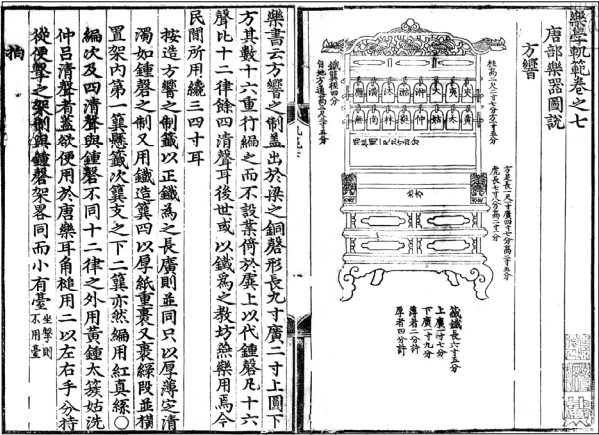 樂學軌範卷之七
唐部樂器圖說
方響
柱高二尺二寸七分方一寸五分
鐵簨經四分
方臺長一尺一寸廣四寸七分高二寸五分
虎長七寸八分高二寸一分
鐵長六寸五分
上廣一寸七分
下廣一寸九分
薄者二分許
厚者四分許
樂書云方響之制盖出於梁之銅磬形長九寸廣二寸上圓下
方其數十六重行編之而不設業倚於簴上以代鍾磬凡十六
聲比十二律餘四清聲耳後世或以鐵爲之教坊燕樂用焉今
民間所用纔三四寸耳
按造方響之制以正鐵為之長廣則並同只以厚薄定清
濁如鍾磬之制又用鐵造簨四以厚紙重裹又裹緜段並橫
置架內第一簨懸次簨支之下二簨亦然編用紅真絲〇
編次及四清聲與鍾磬不同十二律之外用黃鍾太簇姑洗
仲呂清聲者盖欲便用於唐樂耳角槌用二以左右手分持
從便擊之架制與鍾磬架畧同而小有臺坐擊則不用臺
拍